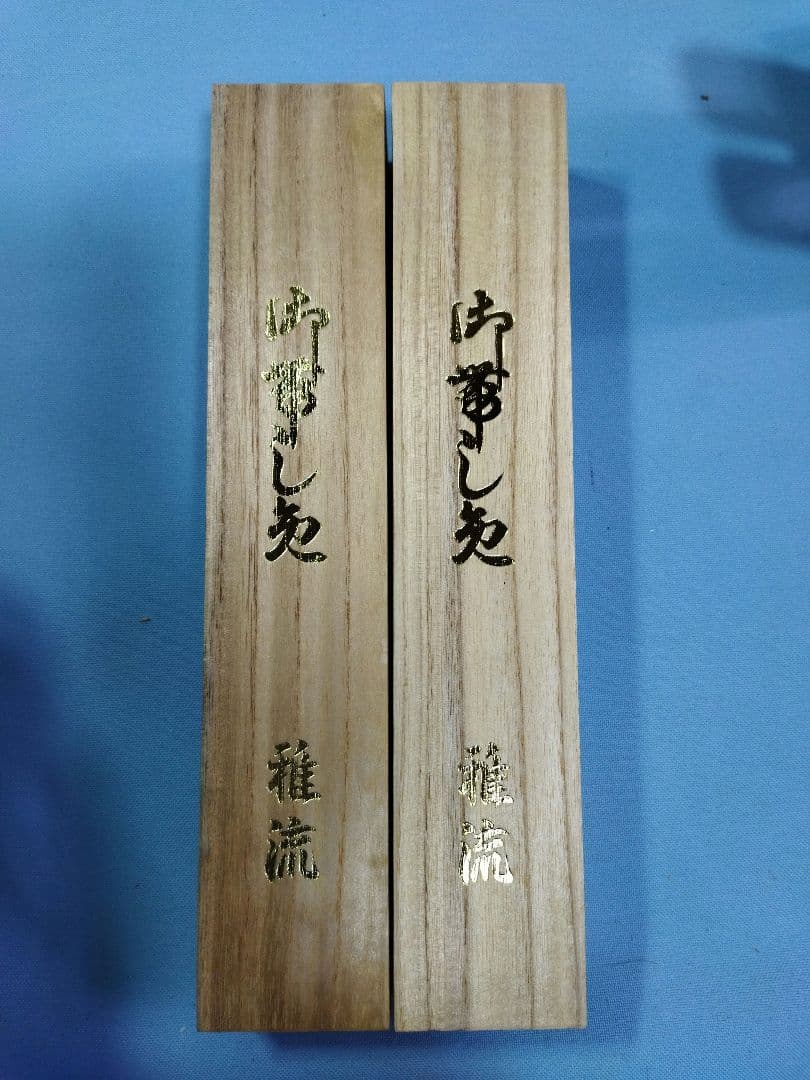 御帯し免
雅流
御帯し免
雅流